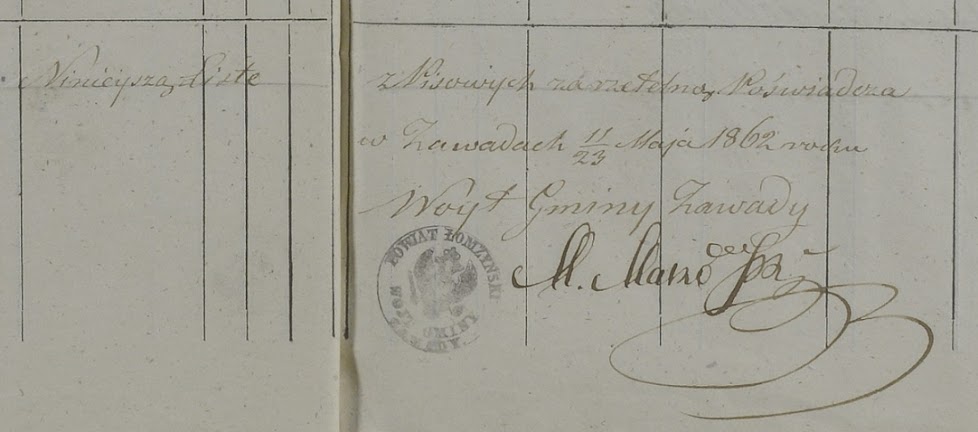 Ninieyszą Listę z Pisowych za rzetelną Poświadcza
w Zawadach 11/23 Maja 1862 roku
Woyt Gminy Zawady
M.
POWIAT ŁOMZYNSKI
WOJT GMINY ZAWADY